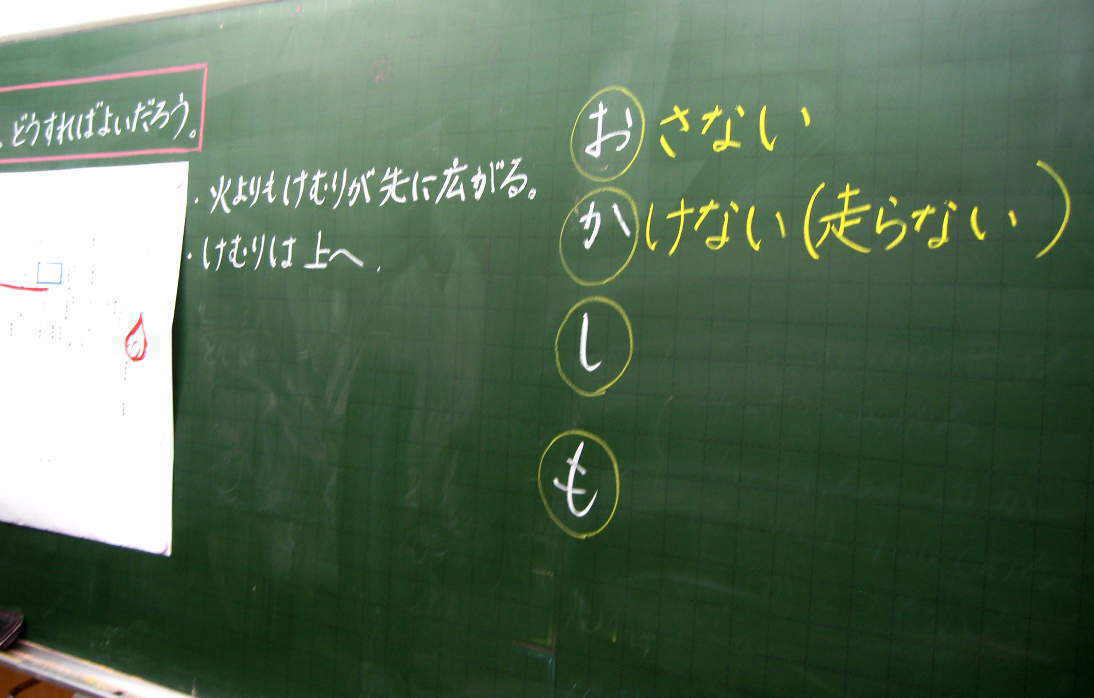 、どうすればよいだろう。
・火よりもけむりが先に広がる。
・けむりは上へ.
おさない
かけない(走らない)
し
も